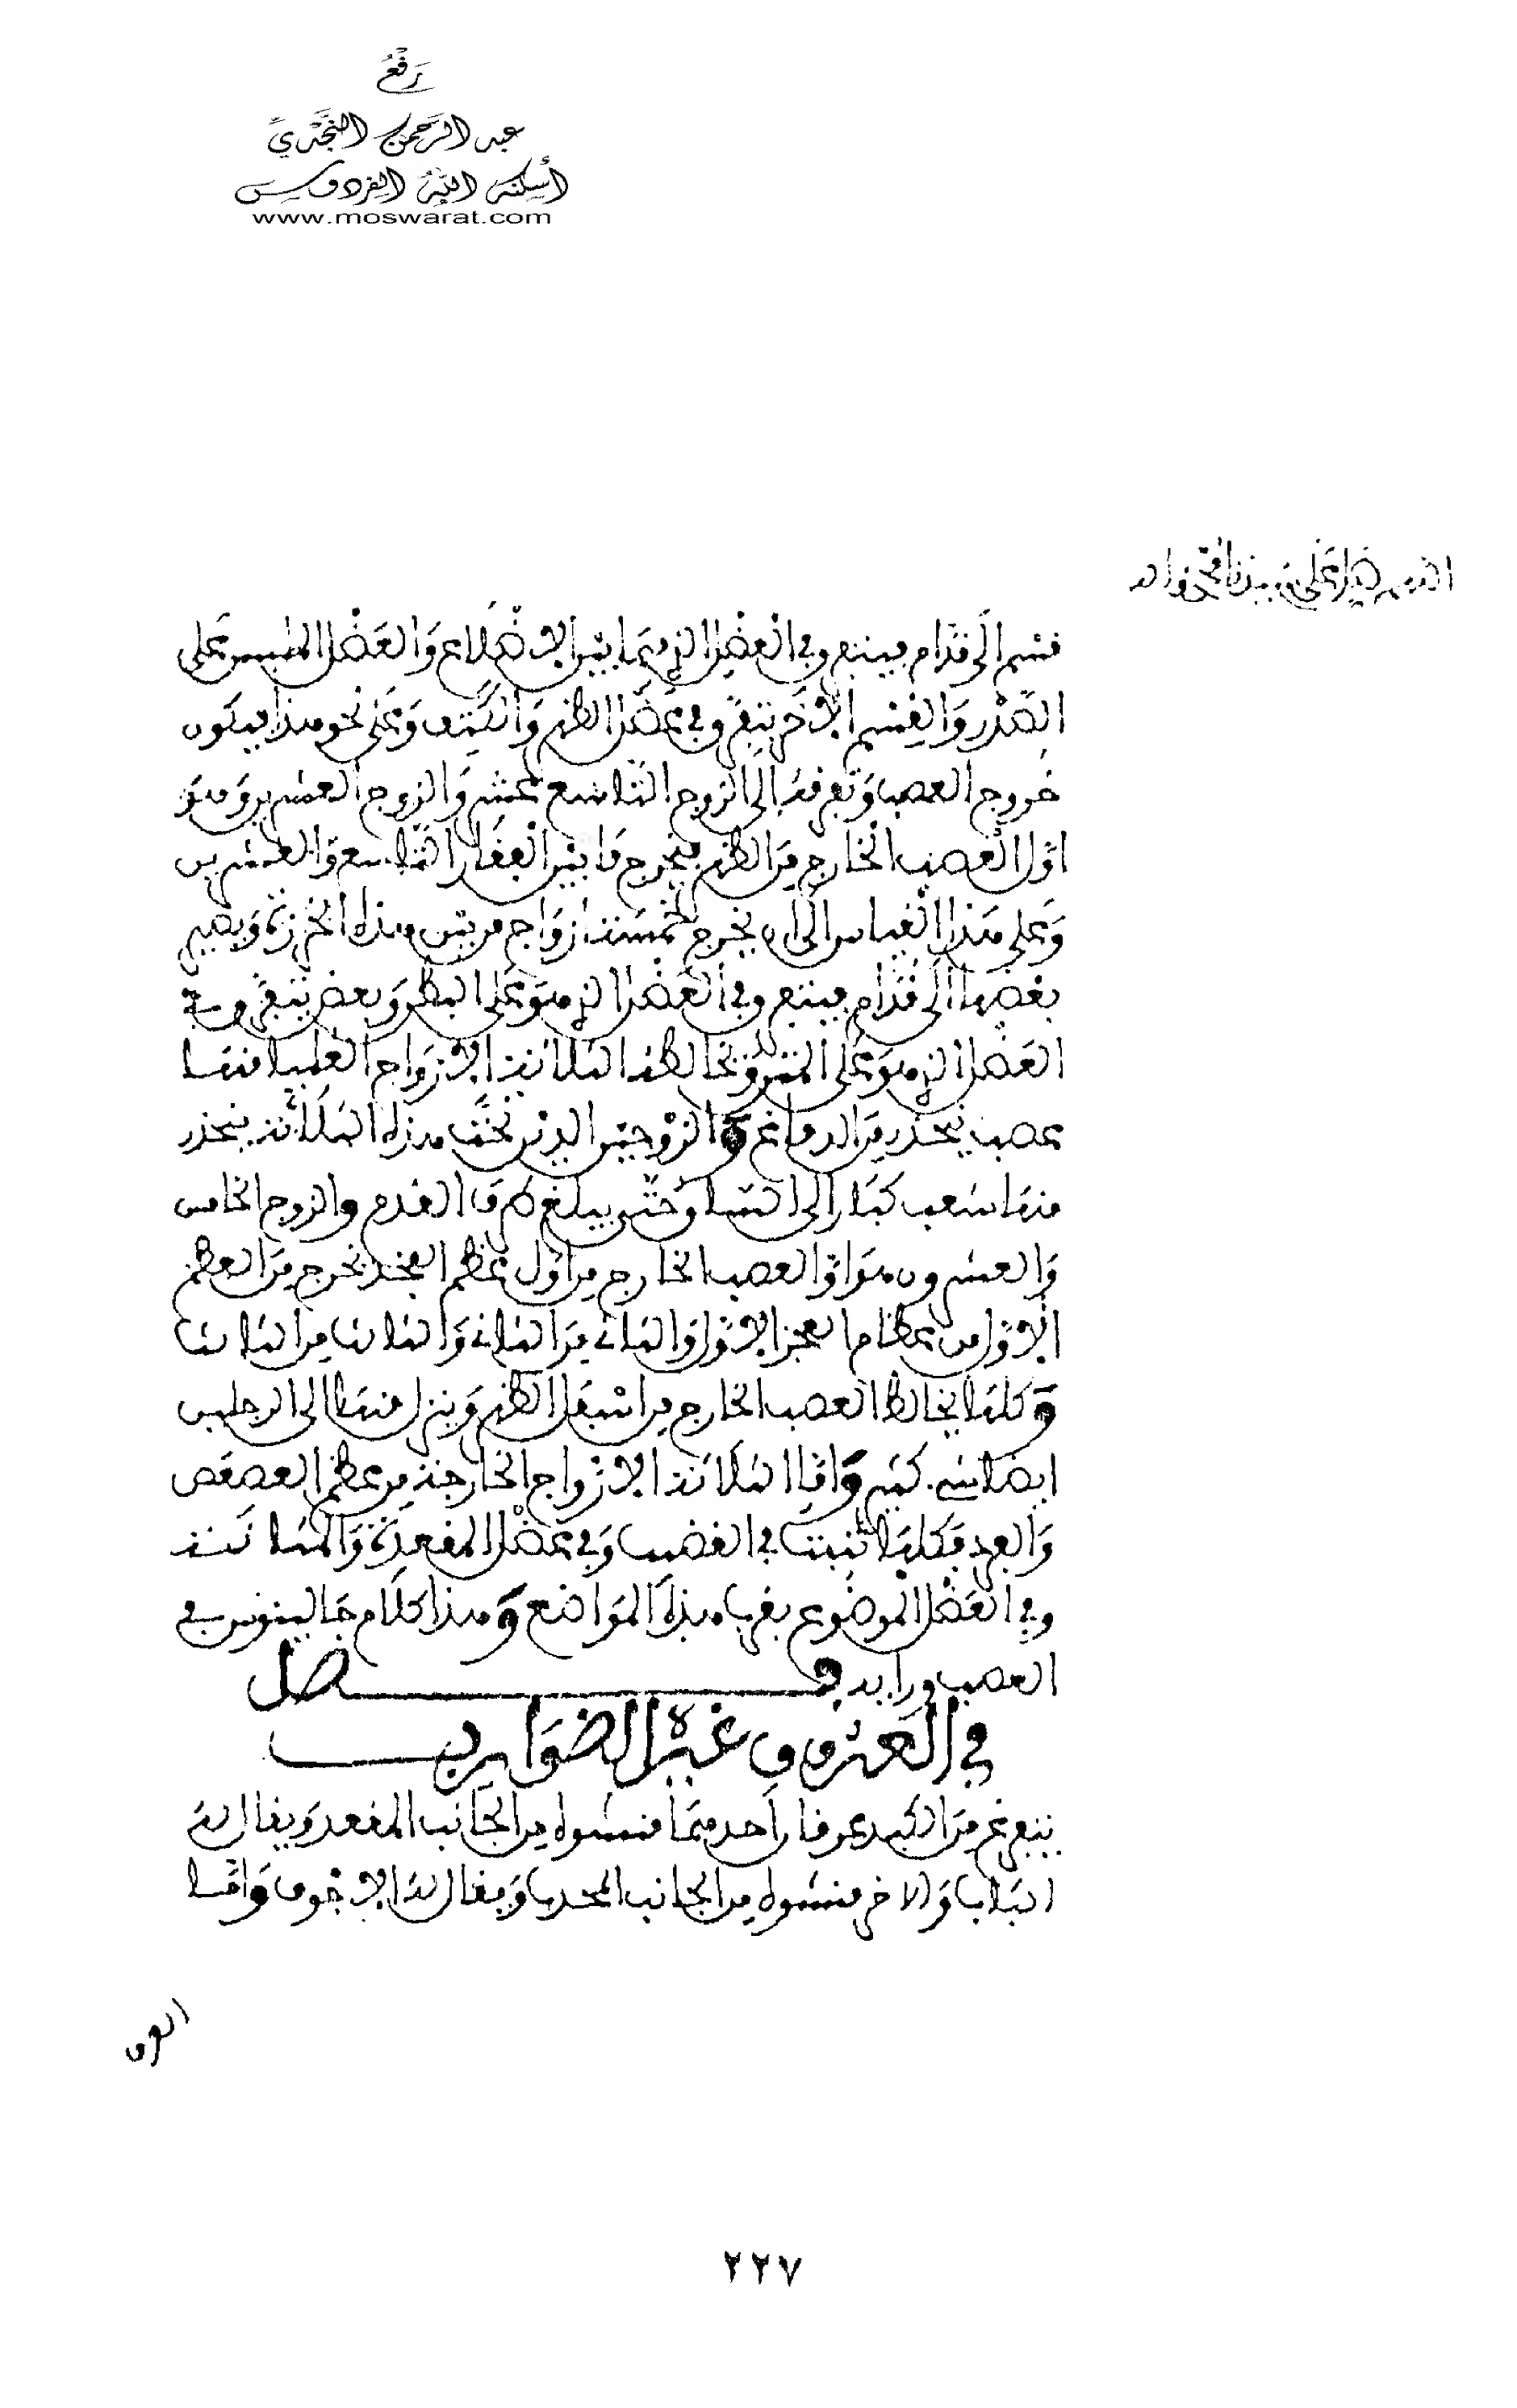 رَفعُ
عبد الرحمن النجدي
أسكنه الله الفردوس
www.moswarat.com
اللهم صل على سيدنا محمد وآله
قسم الى قدام فيتفرق في العضل الذي فيما بين الاضلاع والعضل الملبس على
الصدر والقسم الاخر يتفرق في عضل الظهر والكتف وعلى نحو هذا يكون
خروج العصب وتفرقه الى الزوج التاسع عشر والزوج العشرين وهو
اول العصب الخارج من الظهر يخرج ما بين الفقار التاسع والعشرين
وعلى هذا القياس الى ان يخرج خمسة ازواج من بين هذه الخرزة ويصير
بعضها الى قدام فيتفرق في العضل الذي هو على البطن وبعض يتفرق في
العضل الذي هو على المتن وتخالط هذه الثلاثة الازواج العليا منها
عصب ينحدر من الدماغ والزوجين الذين تحت هذه الثلاثة ينحدر
منها شعب كبار الى الساق حتى يبلغ طرف القدم والزوج الخامس
والعشرون هو اول العصب الخارج من اول عظم الفخذ تخرج من العظم
الاول من عظام العجز الاول والثاني من الثاني والثالث من الثالث
وكلها يخالط العصب الخارج من اسفل الظهر وينزل منها الى الرجلين
ايضا شيء كثير واما الثلاثة الازواج الخارجة من عظم العصعص
والفرد فكلها تنبث في القضيب وفي عضل المقعدة والمثانة
وفي العضل الموضوع بقرب هذه المواضع وهذا كلام جالينوس في
العصب ورايه فصل
في العروق غير الضوارب
يتفرع من الكبد عرقان احدهما منشوه من الجانب المقعر ويقال له
الباب والاخر منشوه من الجانب المحدب ويقال له الاجوف واما
العرق
٢٢٧